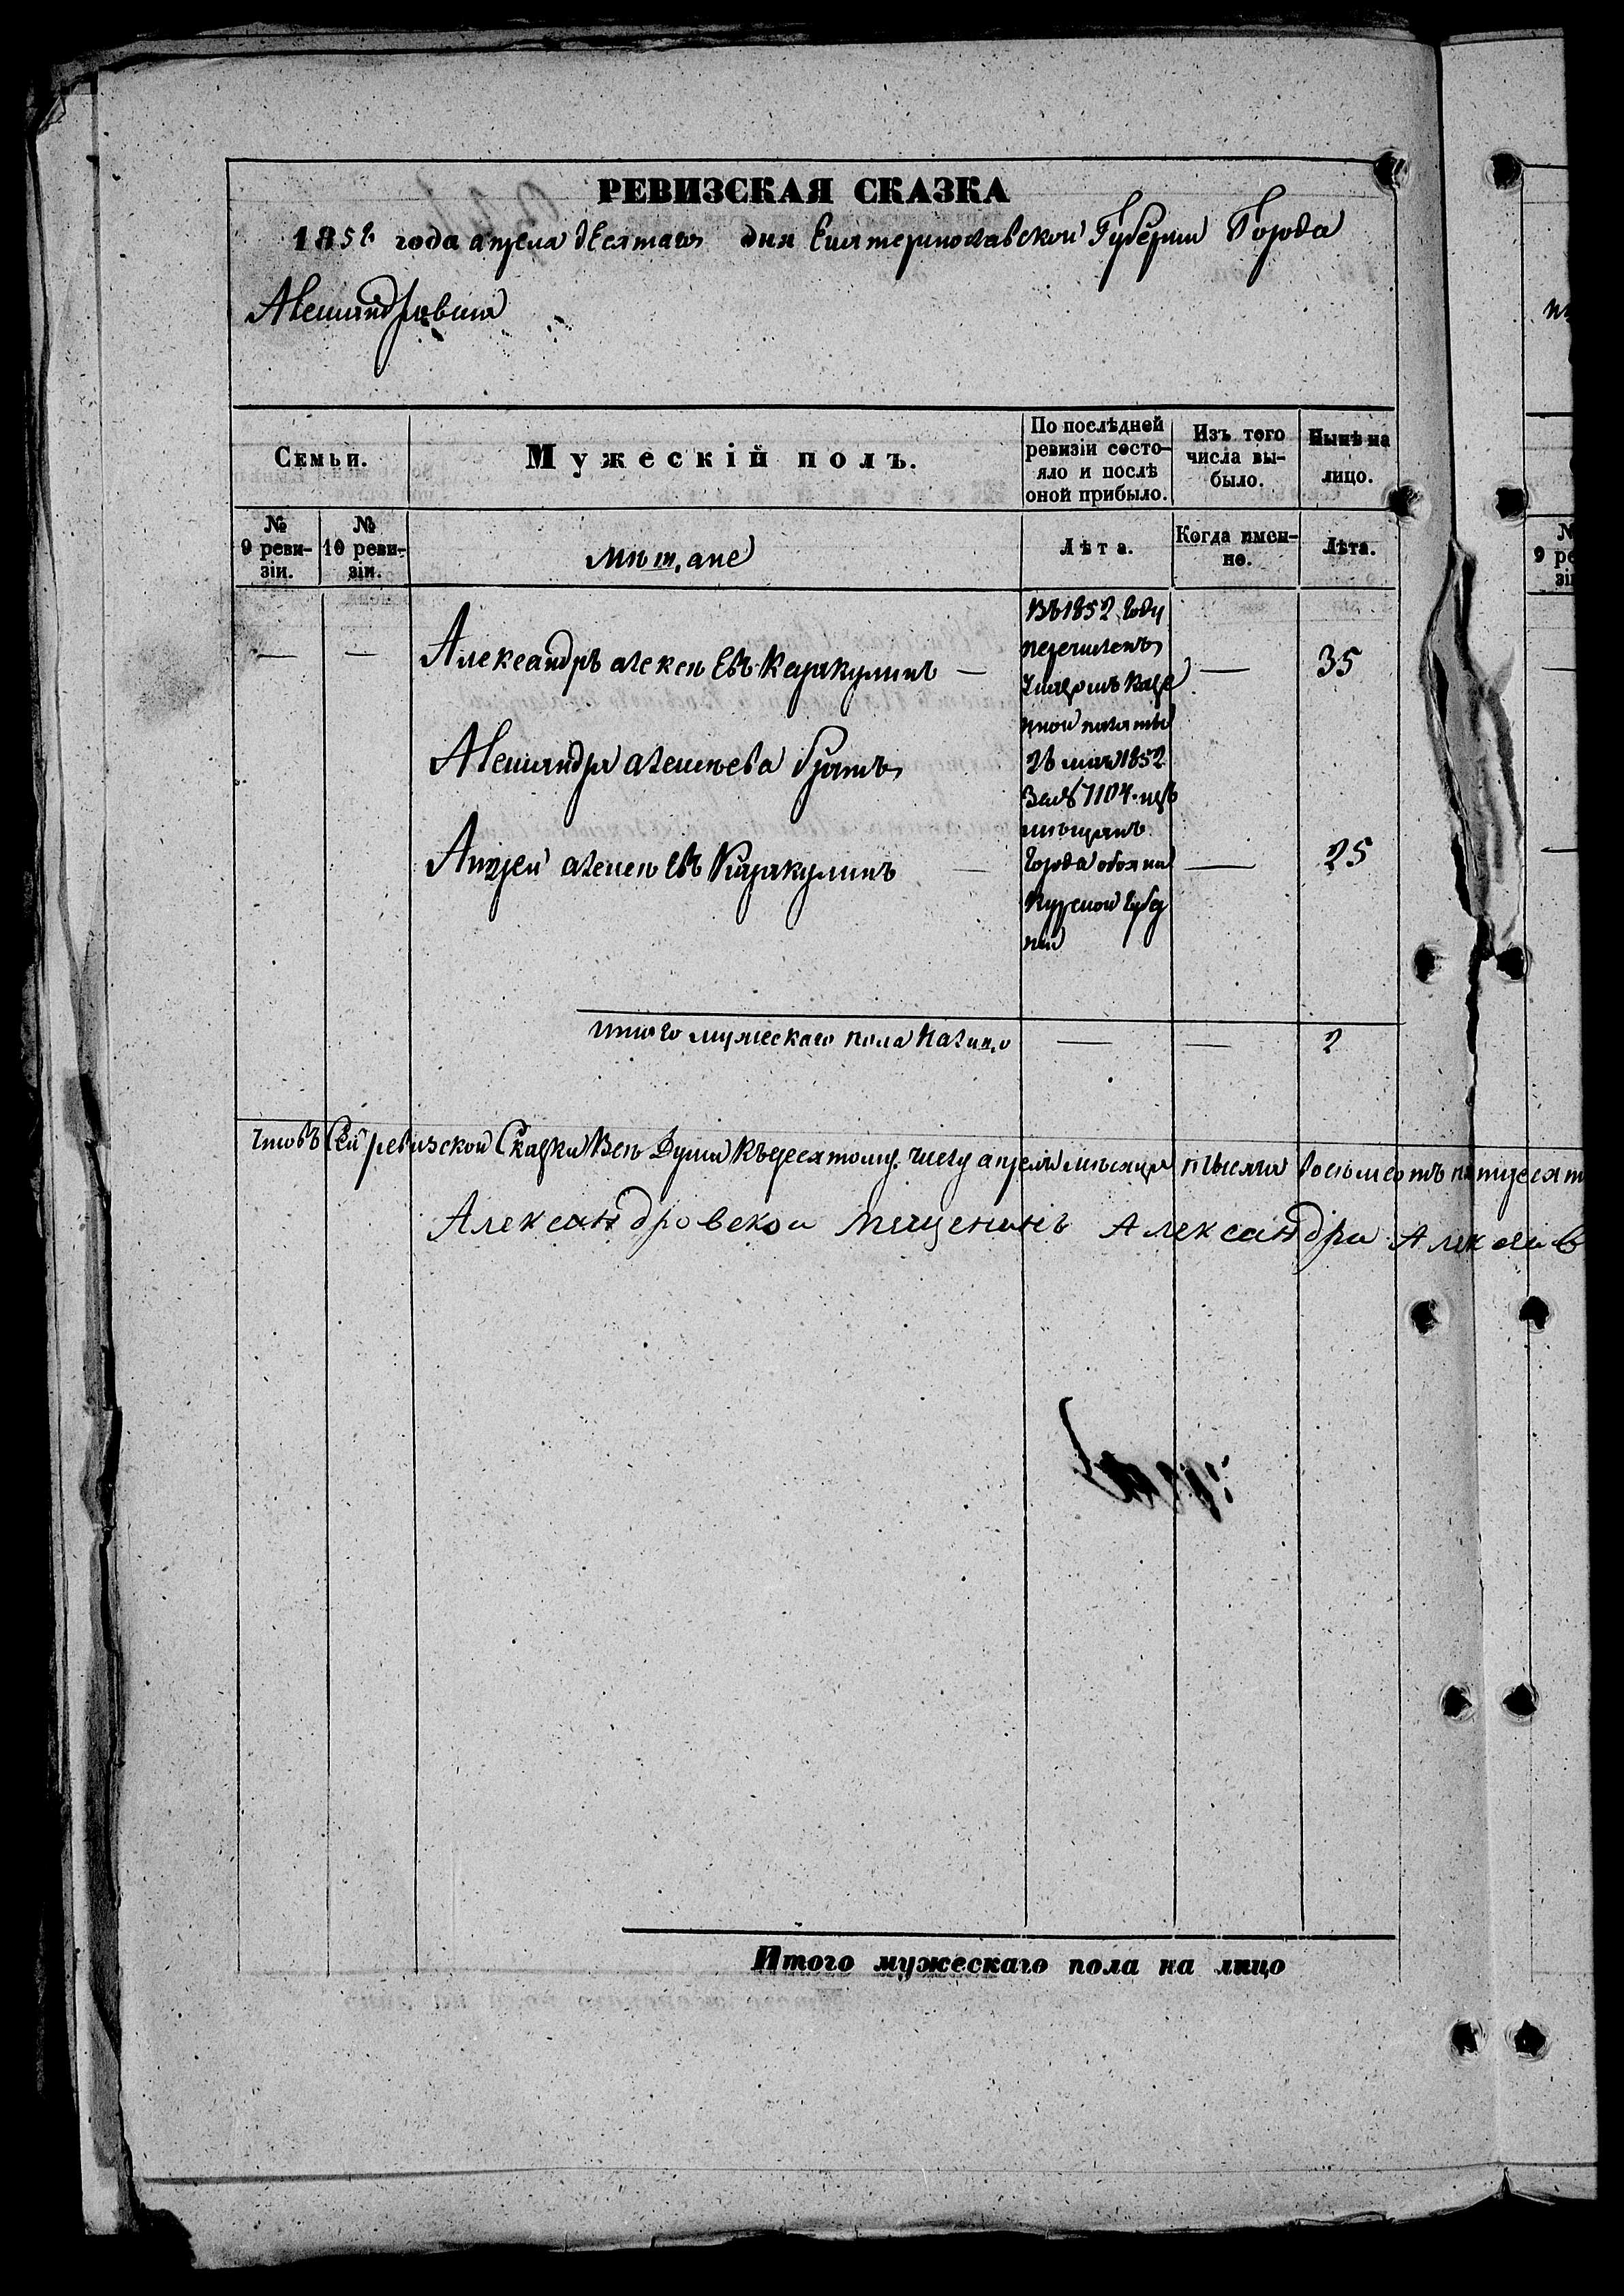 РЕВИЗСКАЯ СКАЗКА
1858 года апреля десятаго дня Екатеринославской Губернии Города
Александровска
Семьи.
Мужескій полъ.
По послѣдней ревизіи состо-
яло и послѣ
оной прибыло.
Изъ того
числа вы-
было.
Нынѣ на
лицо.
№
9 реви-
зіи.
№
10 реви-
зіи.
Мѣщане
Лѣта.
Когда имен-
но.
Лѣта.
Александръ алексѣевъ Каракулинъ — — 35
Въ 1852 году
перечисленъ
Указомъ Казе
нной палаты
26 мая 1852
За № 7104. изъ
мѣщанъ
Города обояни
Курской губер
нии
Александра алексѣева братъ
Андрей алексѣевъ Каракулинъ — — 25
Итого мужескаго пола налицо — — 2
Что въ сей ревизской Сказки Всѣ Души къ десятому числу апреля мѣсяца тысяча восемьсотъ пятдесят
Александровской мещенинъ Александра Алексеив
Итого мужескаго пола на лицо
№
9 ре
зі